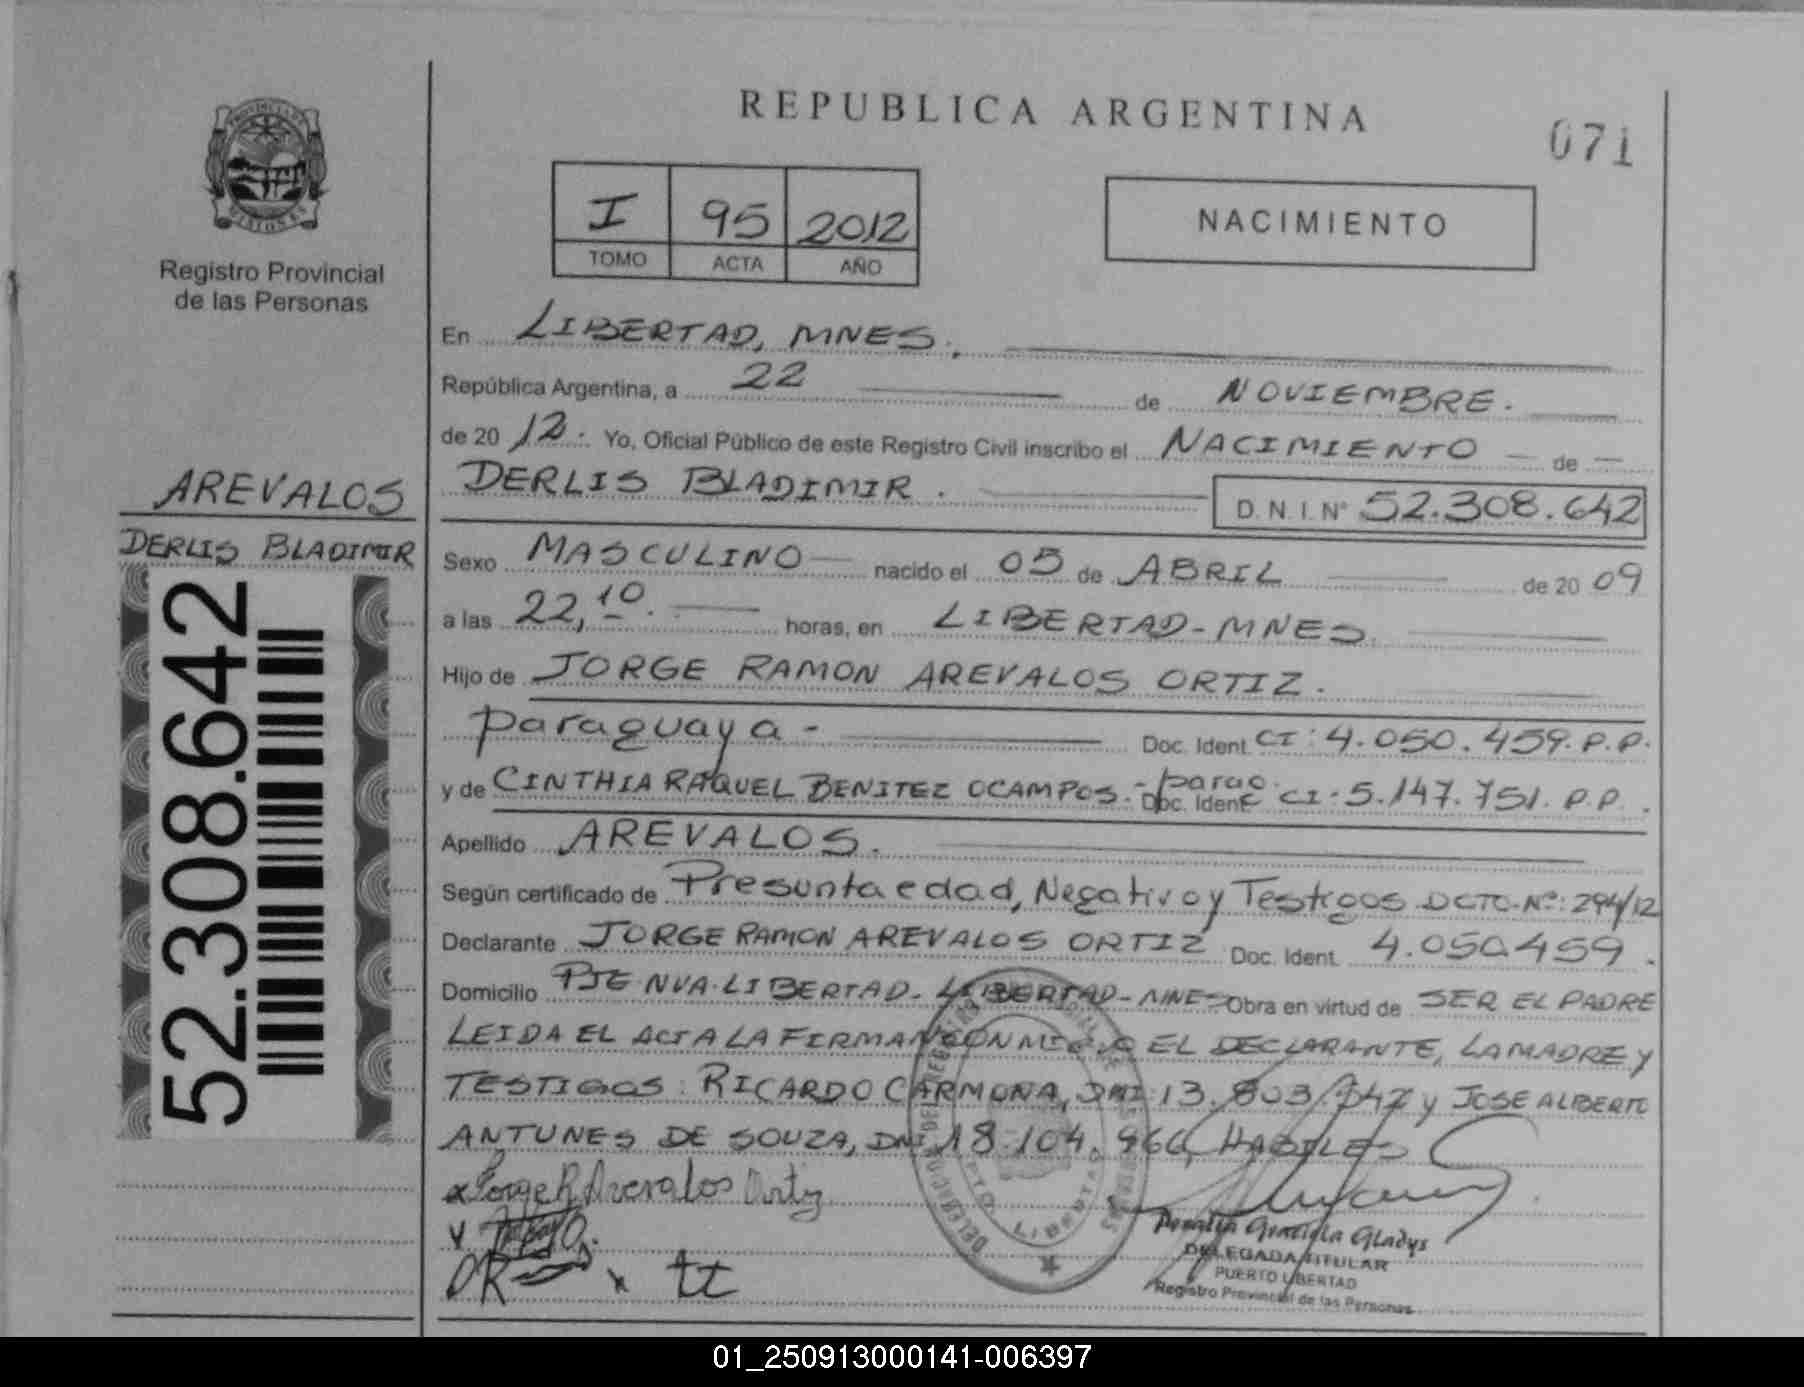 REPUBLICA ARGENTINA
071
PROVINCIA DE
MISIONES
Registro Provincial
de las Personas
I 95 2012
TOMO ACTA AÑO
NACIMIENTO
En LIBERTAD, MNES.
República Argentina, a 22 de NOVIEMBRE.
de 20 12. Yo, Oficial Público de este Registro Civil inscribo el NACIMIENTO de
DERLIS BLADIMIR. D.N.I. Nº 52.308.642
AREVALOS
DERLIS BLADIMIR
52.308.642
Sexo MASCULINO nacido el 05 de ABRIL de 20 09
a las 22,10. horas, en LIBERTAD-MNES.
Hijo de JORGE RAMON AREVALOS ORTIZ.
paraguaya - Doc. Ident. CI: 4.050.459. P.P.
y de CINTHIA RAQUEL BENITEZ OCAMPOS.- parag. Doc. Ident. CI: 5.147.751. P.P.
Apellido AREVALOS.
Según certificado de Presunta edad, Negativo y Testigos DCTO-Nº: 294/12
Declarante JORGE RAMON AREVALOS ORTIZ Doc. Ident. 4.050.459.
Domicilio PJE NVA. LIBERTAD - LIBERTAD - MNES Obra en virtud de SER EL PADRE
LEIDA EL ACTA LA FIRMAN CON MIGO EL DECLARANTE, LA MADRE y
TESTIGOS: RICARDO CARMONA, DNI: 13.803. y JOSE ALBERTO
ANTUNES DE SOUZA, DNI 18.104.966, HABILES
x Jorge R Arevalos Ortiz
Graciela Gladys
DELEGADA TITULAR
PUERTO LIBERTAD
Registro Provincial de las Personas
01_250913000141-006397